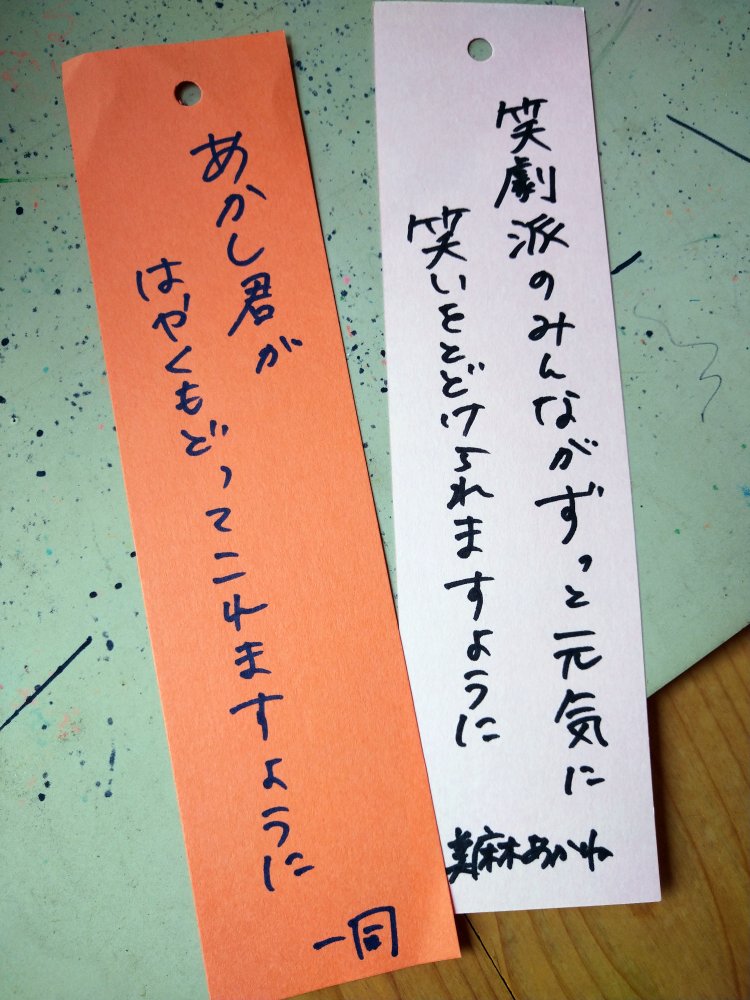 あかし君が
はやくもどってこれますように
一同
笑劇派のみんながずっと元気に
笑いをとどけられますように
美麻あかね